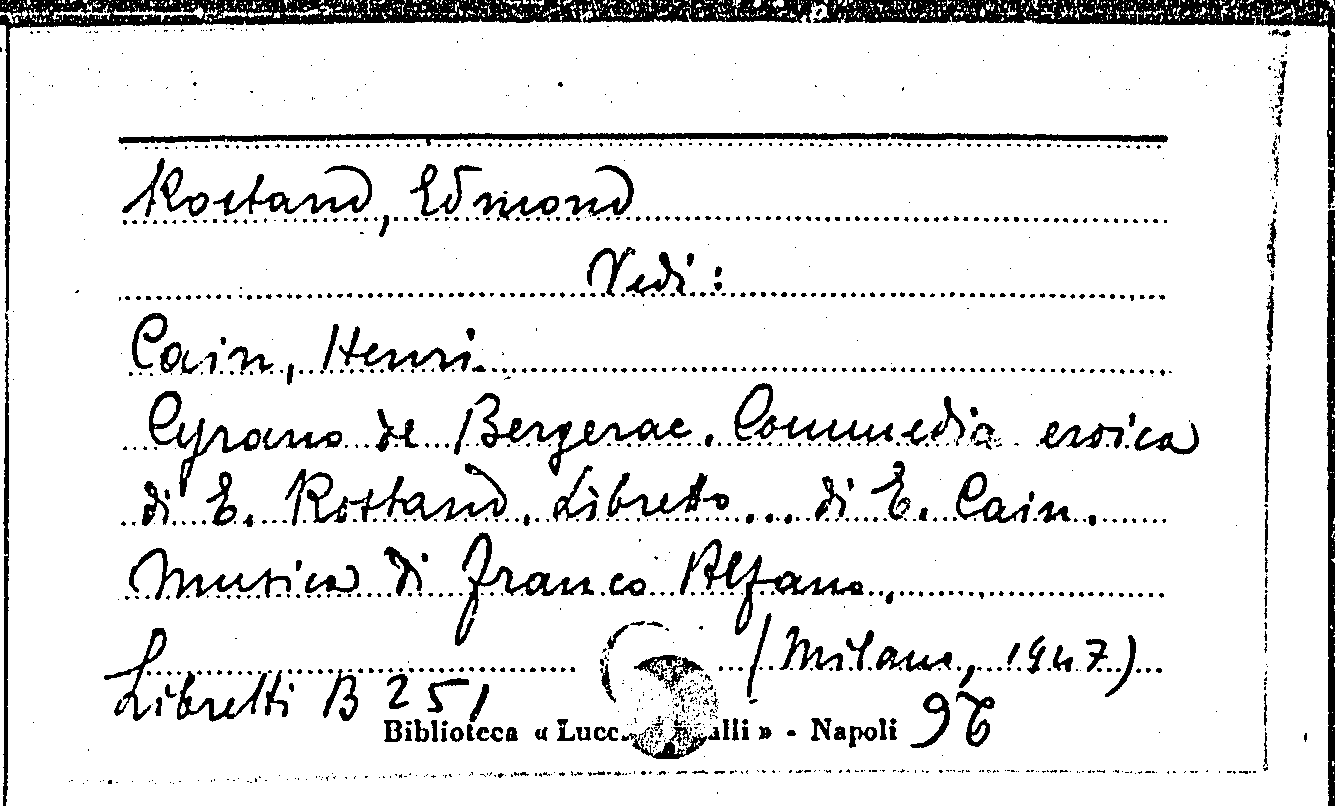 Rostand, Edmond
Vedi:
Cain, Henri.
Cyrano de Bergerac. Commedia eroica
di E. Rostand. Libretto... di E. Cain.
Musica di Franco Alfano.
(Milano, 1947)
Libretti B 251
Biblioteca « Lucc alli » - Napoli